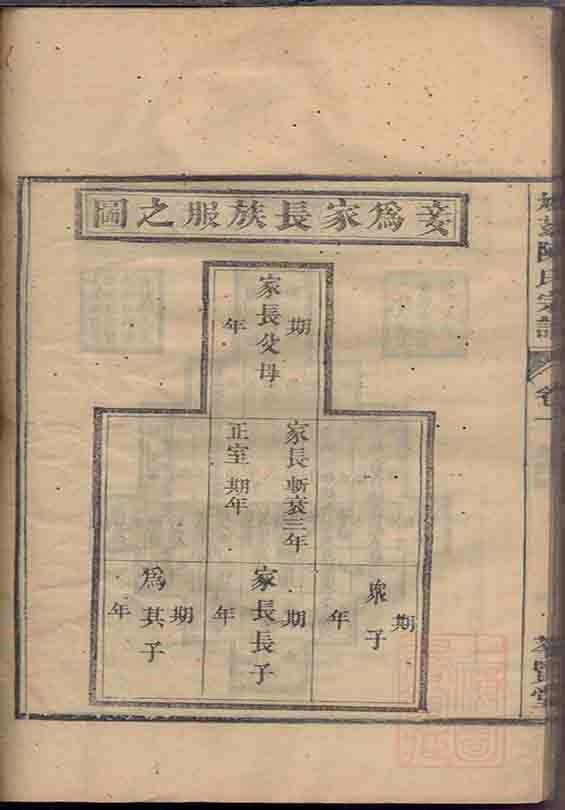 妾為家長族服之圖
家長父母
期年
家長斬衰三年
正室期年
眾子
期年
家長長子
期年
為其子
期年
陳氏宗譜
卷一